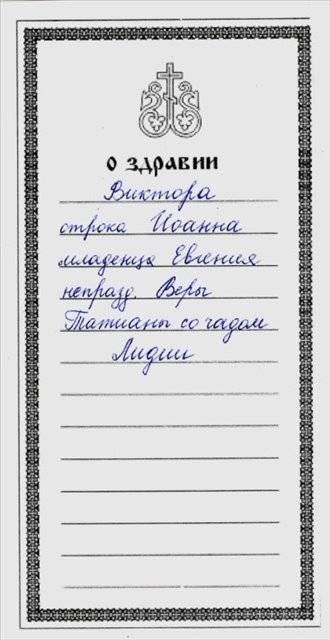 О ЗДРАВИИ
Виктора
отрока Иоанна
младенца Евгения
непразд. Веры
Татианы со чадом
Лидии